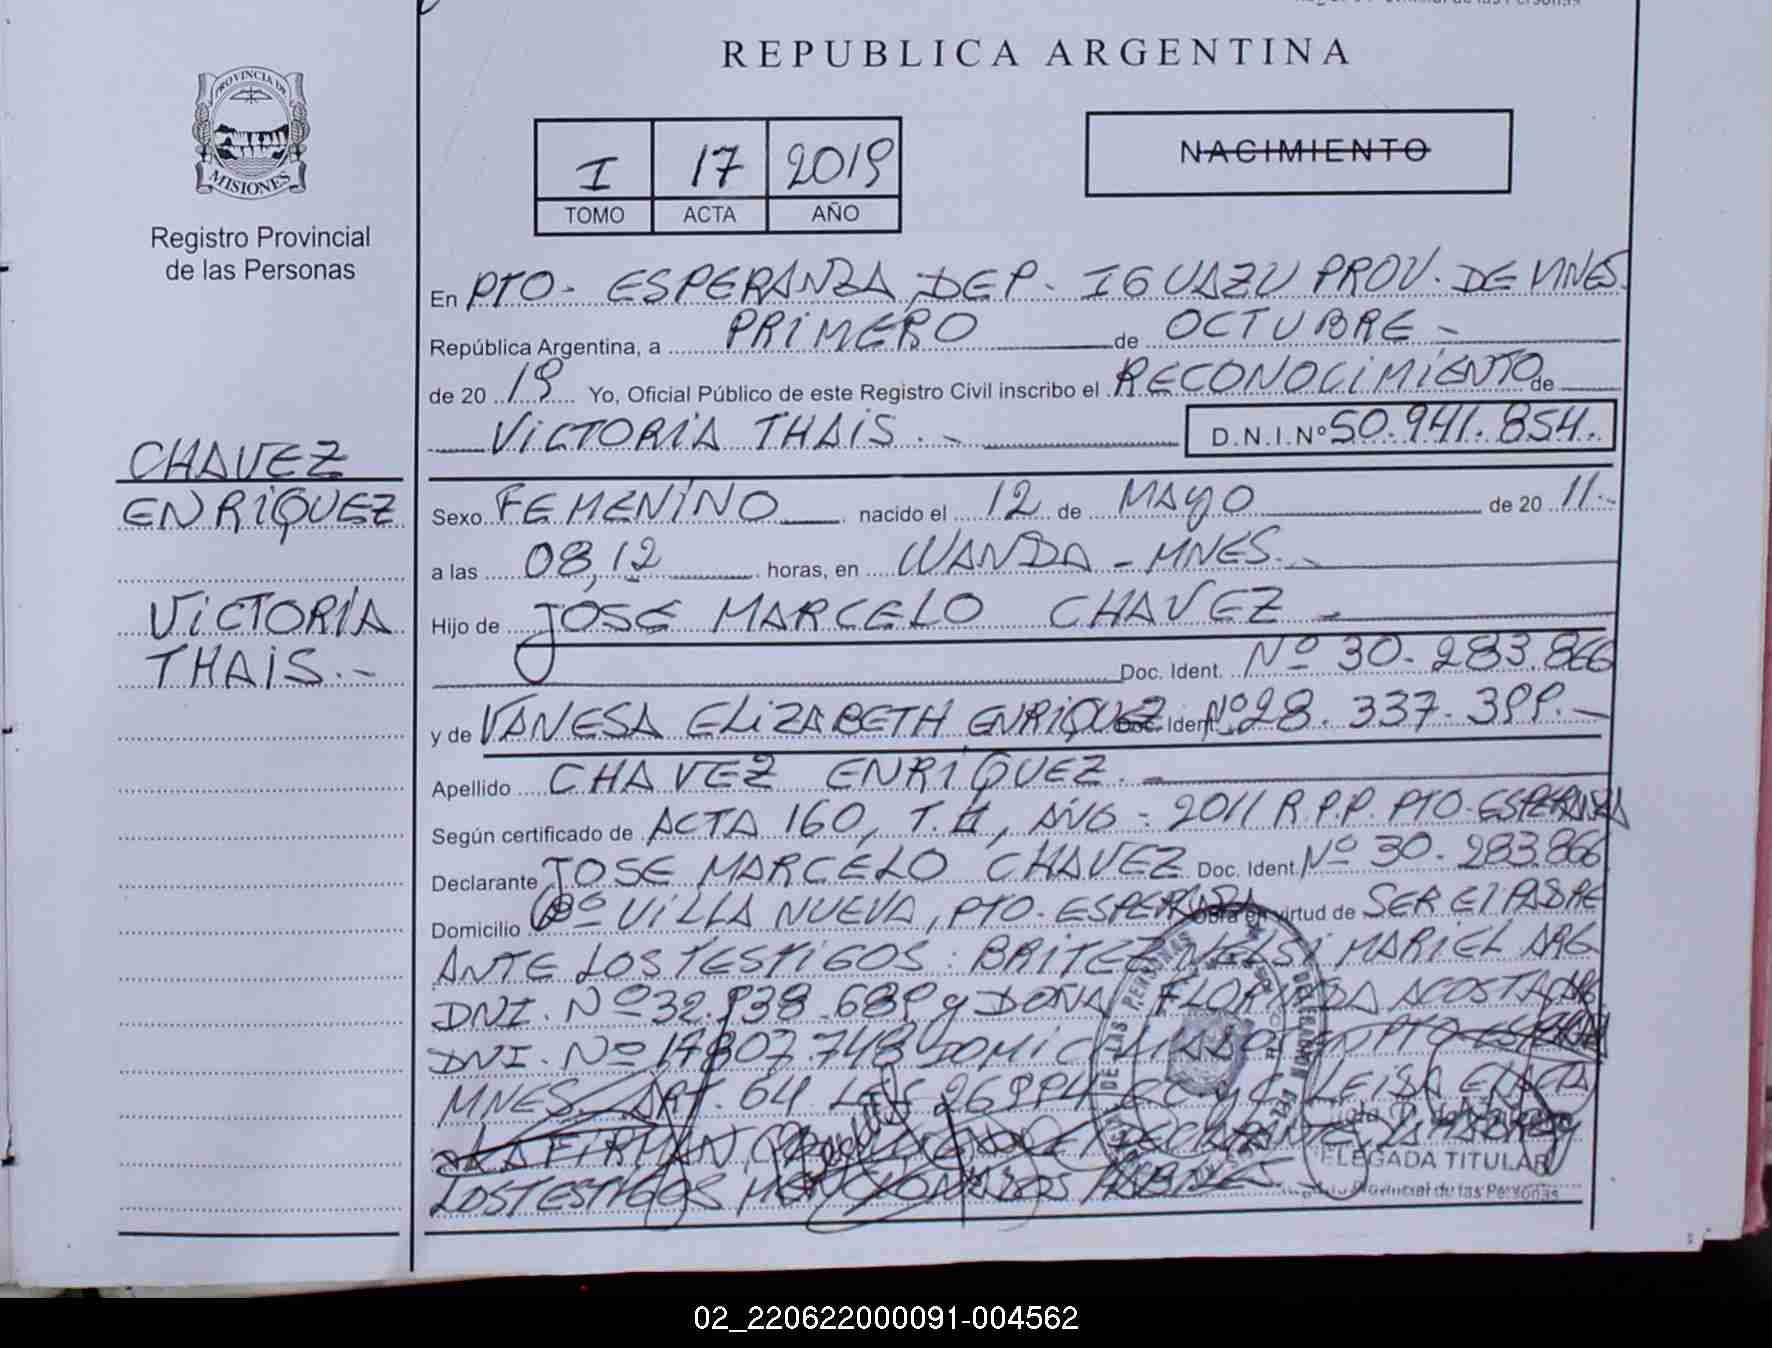 REPUBLICA ARGENTINA
PROVINCIA DE
MISIONES
Registro Provincial
de las Personas
I 17 2019
TOMO ACTA AÑO
NACIMIENTO
En PTO- ESPERANZA, DEP- IGUAZU PROV. DE MNES.
República Argentina, a PRIMERO de OCTUBRE -
de 20 19 Yo, Oficial Público de este Registro Civil inscribo el RECONOCIMIENTO de
VICTORIA THAIS.- D.N.I.Nº 50.941.854.
CHAVEZ
ENRIQUEZ
VICTORIA
THAIS.-
Sexo FEMENINO nacido el 12 de MAYO de 20 11.-
a las 08,12 horas, en WANDA - MNES.-
Hijo de JOSE MARCELO CHAVEZ -
Doc. Ident. Nº 30-283.866
y de VANESA ELIZABETH ENRIQUEZ Doc. Ident. Nº 28.337.399.-
Apellido CHAVEZ ENRIQUEZ.-
Según certificado de ACTA 160, T. II, AÑO - 2011 R.P.P. PTO-ESPERANZA
Declarante JOSE MARCELO CHAVEZ Doc. Ident. Nº 30-283.866
Domicilio Bº VILLA NUEVA, PTO-ESPERANZA Obra en virtud de SER El PADRE
ANTE LOS TESTIGOS: BRITEZ NELSI MARIEL ARG
DNI. Nº 32.938.689 y DOÑA FLORINDA ACOSTA ARG.
DNI. Nº 17.807.748 DOMICILIADOS EN PTO-ESPERANZA
MNES. ART. 64 LEY 26994 LEIDA EL ACTA
LA FIRMAN EL DECLARANTE, LA MADRE y
LOS TESTIGOS MENCIONADOS
DELEGADA TITULAR
Provincial de las Personas
02_220622000091-004562